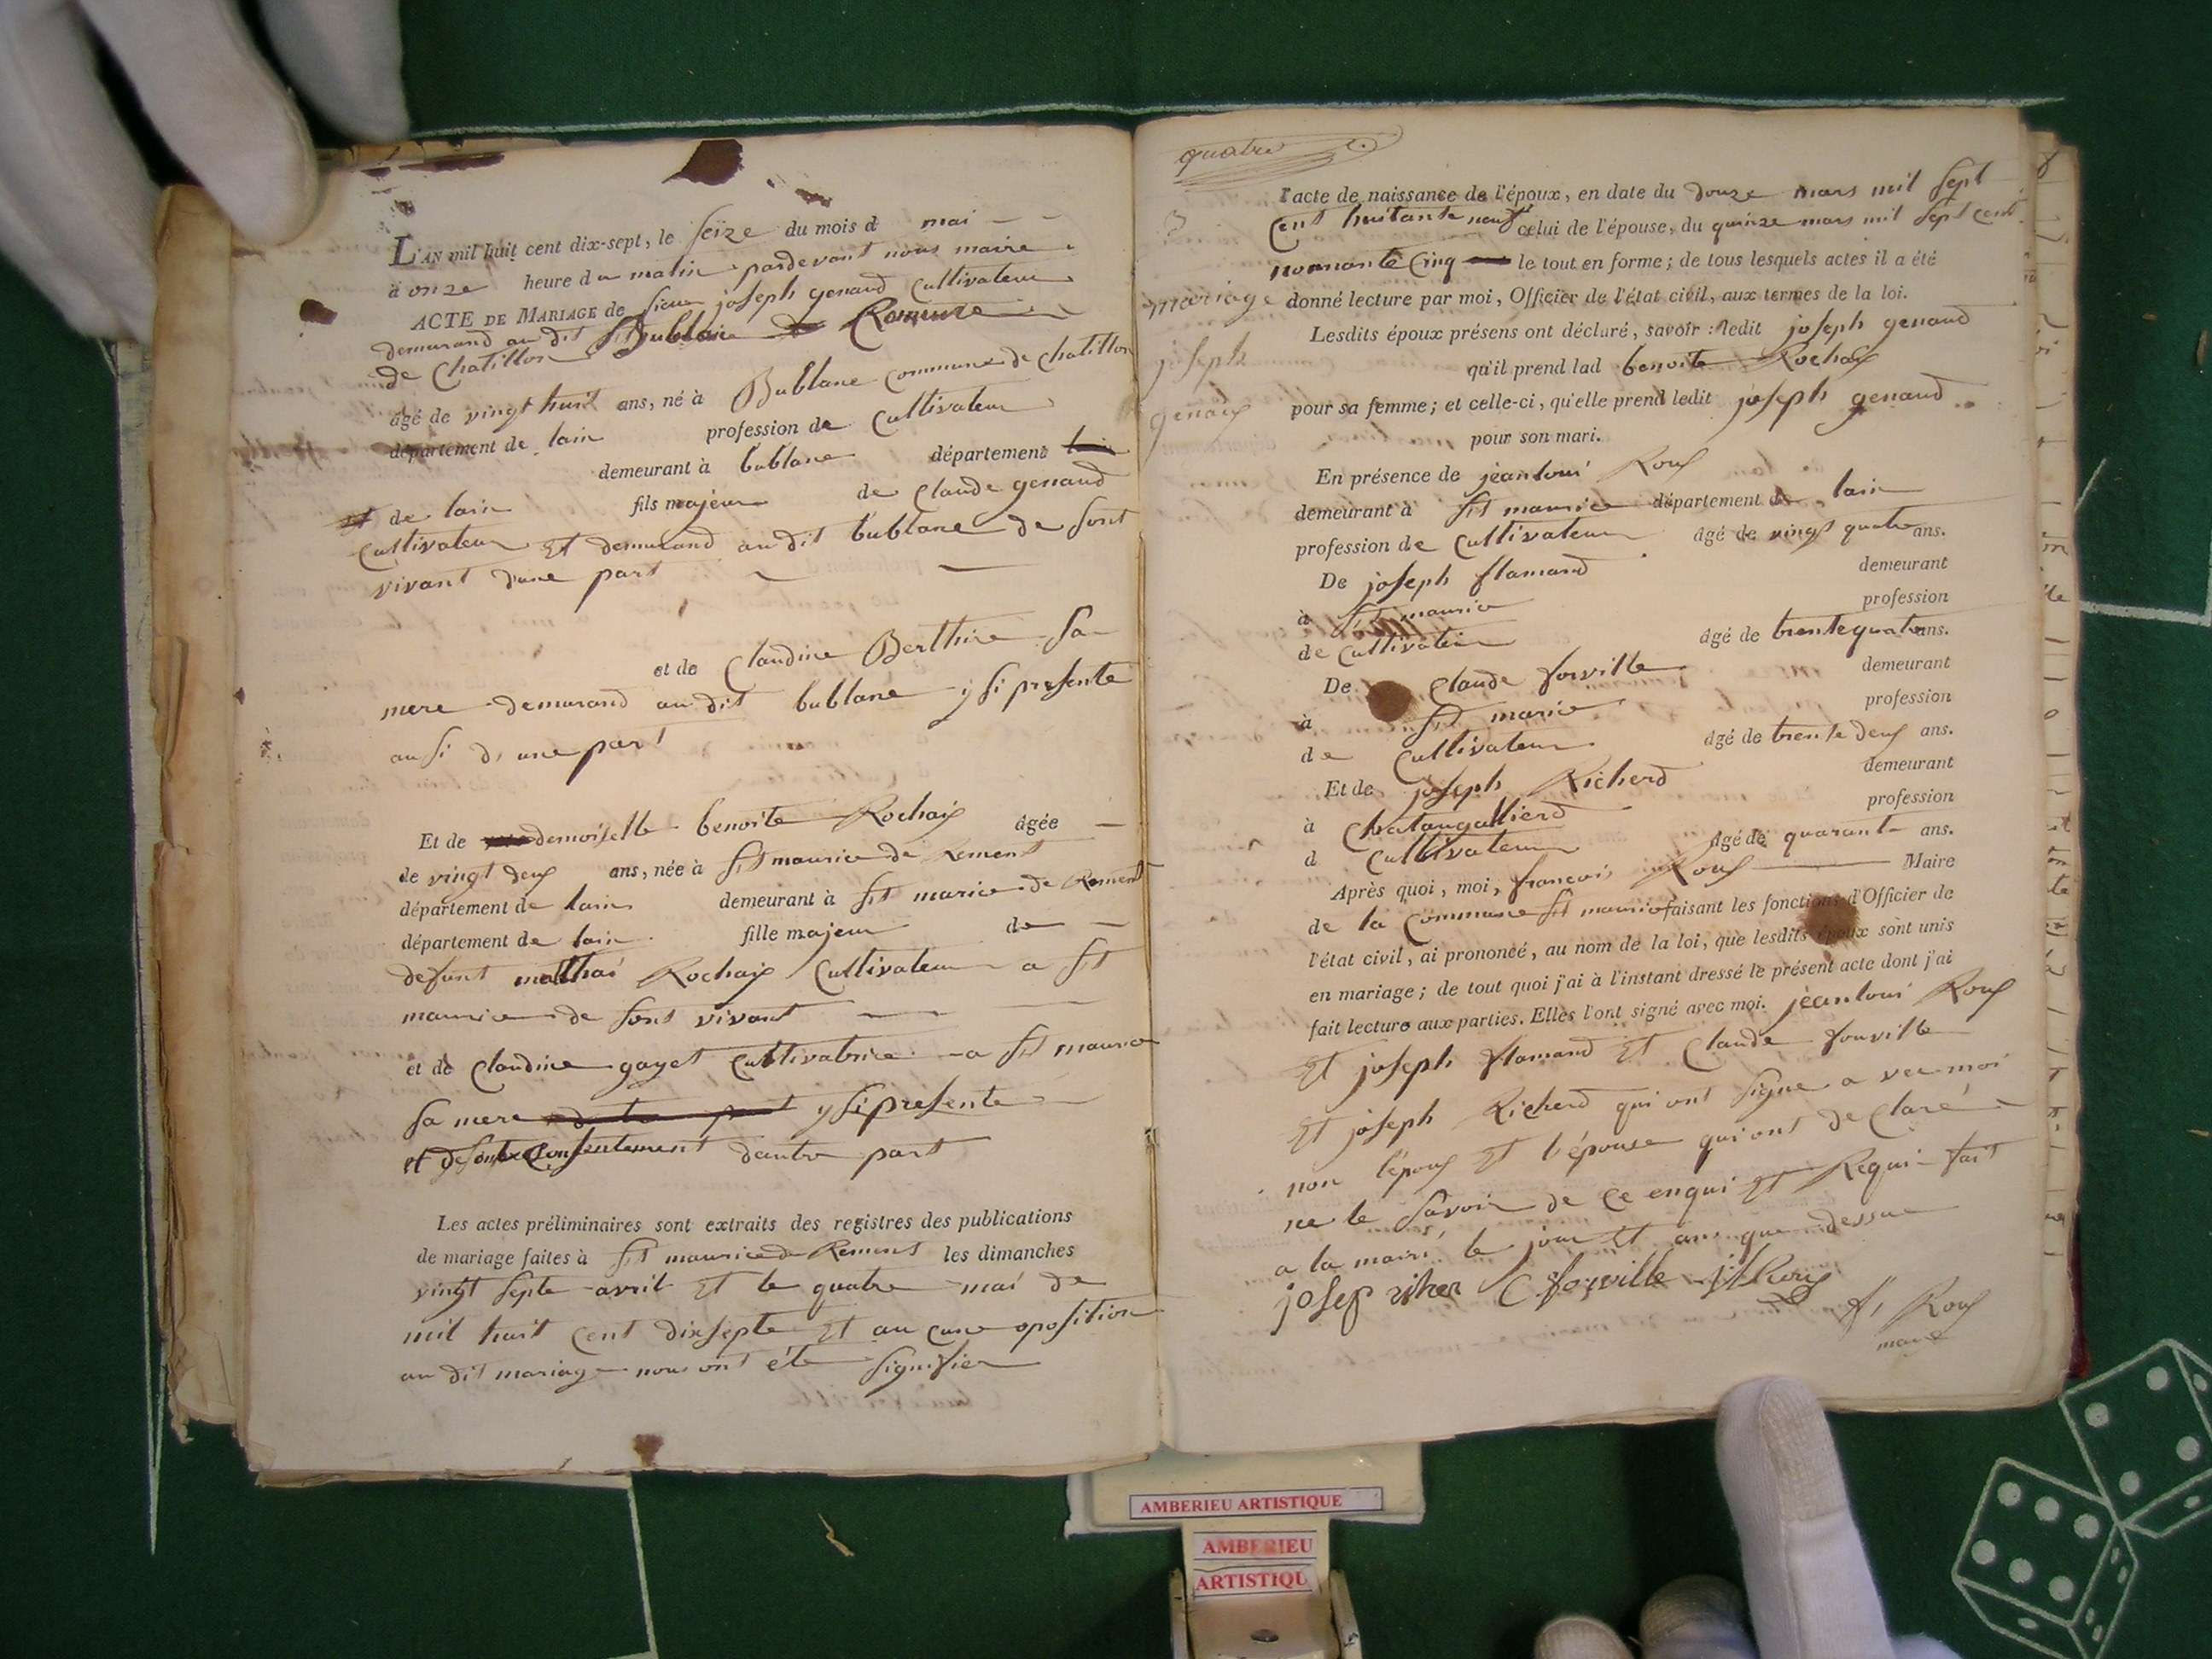 L'AN mil huit cent dix-sept, le seize du mois d mai
à onze heure du matin pardevant nous maire
ACTE DE MARIAGE de sieur joseph genaud Cultivateur
demurand au dit Bublane
de Chatillon
âgé de vingt huit ans, né à Bublane commune de Chatillon
département de lain profession de Cultivateur
demeurant à bublane département
de lain fils majeur de Claude genaud
Cultivateur et demurand au dit bublane de sont
vivant dune part
et de Claudine Berthire sa
mere demurand au dit bublane y si presente
ausi d'une part
Et de demoiselle benoite Rochaix âgée
de vingt deux ans, née à St maurice de Rement
département de lain demeurant à St marice de Rement
département de lain fille majeur de
defunt matthai Rochaix Cultivateur a St
maurice de sont vivant
et de Claudine gayet Cultivatrice a St maurice
sa mere y si presente
et de Consentement dautre part
Les actes préliminaires sont extraits des registres des publications
de mariage faites à St maurice de Remens les dimanches
vingt septe avril et le quatre mai de
mil huit cent dixsepte et au cune oposition
au dit mariage nous ont été signifier
quatre
3
mariage
joseph
genaux
l'acte de naissance de l'époux, en date du douze mars mil sept
cent huitante neuf celui de l'épouse, du quinze mars mil sept cent
nonnante Cinq le tout en forme; de tous lesquels actes il a été
donné lecture par moi, Officier de l'état civil, aux termes de la loi.
Lesdits époux présens ont déclaré, savoir: ledit joseph genaud
qu'il prend lad benoite Rochaix
pour sa femme; et celle-ci, qu'elle prend ledit joseph genaud
pour son mari.
En présence de jeanloui Roux
demeurant à St maurice département de lain
profession de Cultivateur âgé de vingt quatre ans.
De joseph flamand demeurant
à St maurice profession
de Cultivateur âgé de trente quatre ans.
De Claude forville demeurant
à St marice profession
de Cultivateur âgé de trente deux ans.
Et de joseph Richerd demeurant
à Chatangallierd profession
d Cultivateur âgé de quarant ans.
Après quoi, moi, francois Roux Maire
de la Commune St maurice faisant les fonctions d'Officier de
l'état civil, ai prononcé, au nom de la loi, que lesdits époux sont unis
en mariage; de tout quoi j'ai à l'instant dressé le présent acte dont j'ai
fait lecture aux parties. Elles l'ont signé avec moi. jeanloui Roux
et joseph flamand et Claude forville
et joseph Richerd qui ont signe a vec moi
non lépoux et l'épouse qui ont de Claré
ne le savoir de ce enqui et Requi fait
a la mairi le jour et an que dessue
josep riher C forville jl Roux
f, Roux
maire
AMBERIEU ARTISTIQUE
AMBERIEU
ARTISTIQU